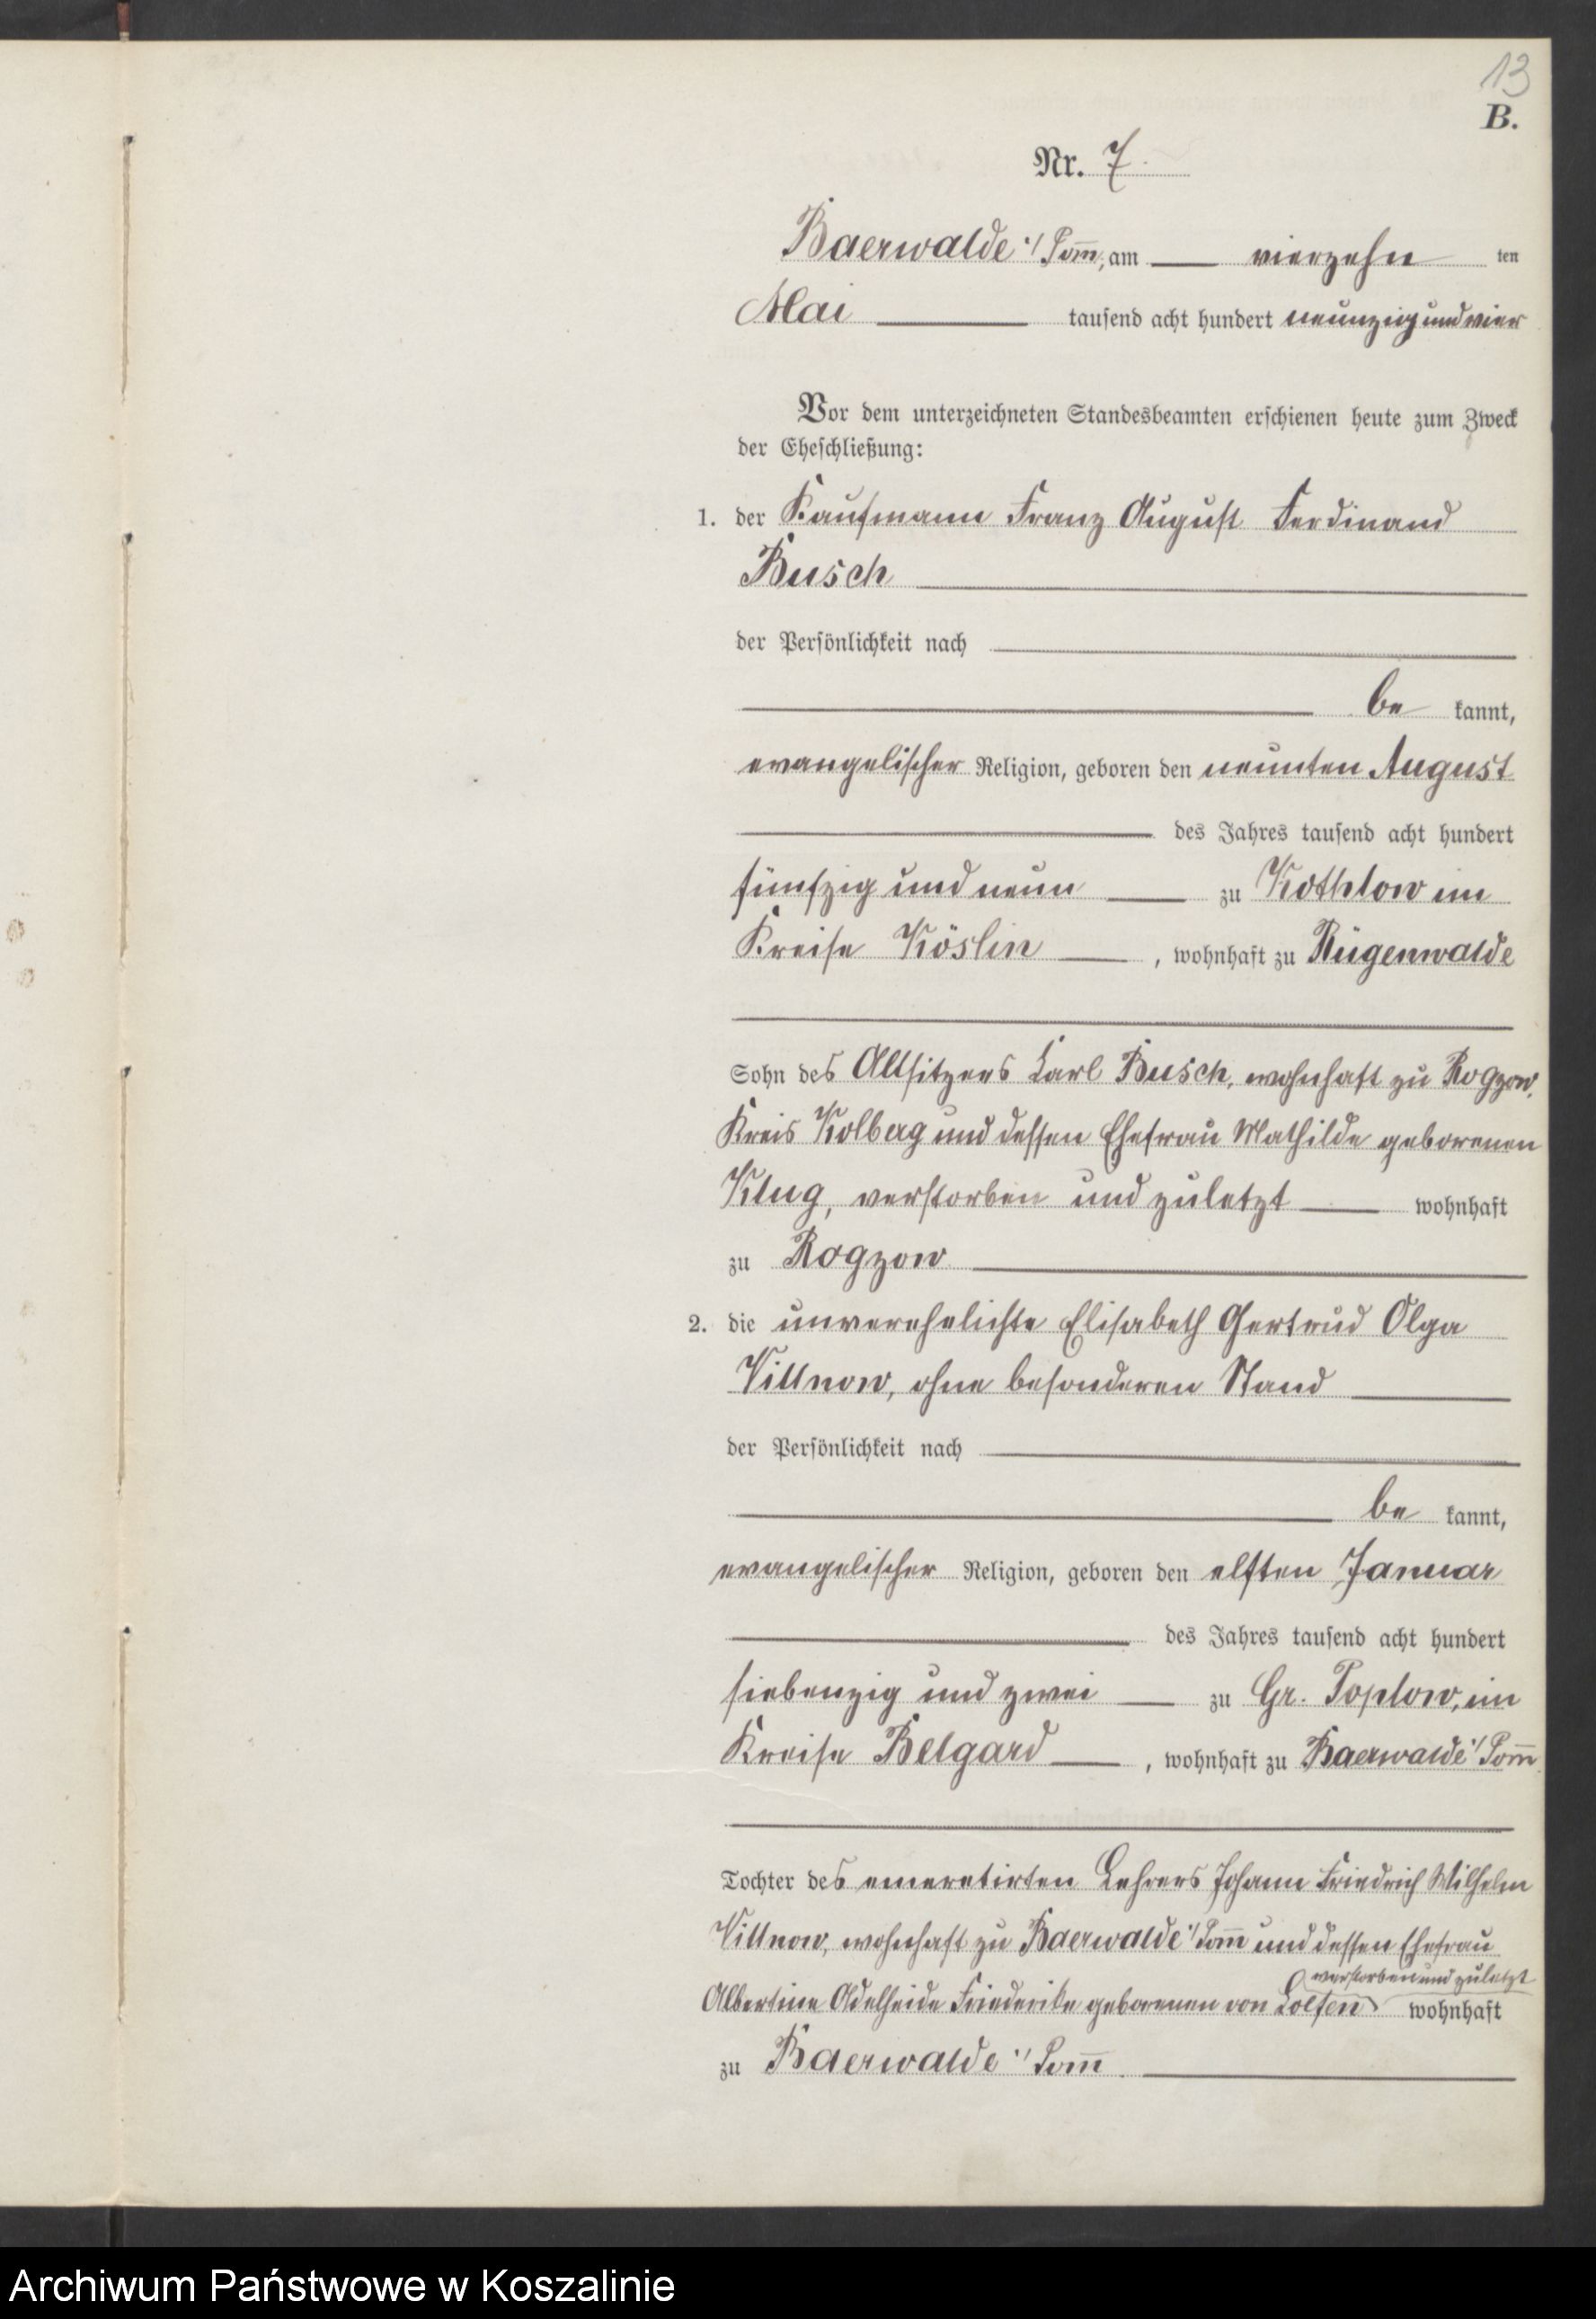 13
B.
Nr. 7.
Baerwalde i/Pom̅, am vierzehn ten
Mai tausend acht hundert neunzig und vier
Vor dem unterzeichneten Standesbeamten erschienen heute zum Zweck
der Eheschließung:
1. der Kaufmann Franz August Ferdinand
Busch
der Persönlichkeit nach
be kannt,
evangelischer Religion, geboren den neunten August
des Jahres tausend acht hundert
fünfzig und neun zu Kothlow im
Kreise Köslin, wohnhaft zu Rügenwalde
Sohn des Altsitzers Karl Busch, wohnhaft zu Rogzow,
Kreis Kolberg und dessen Ehefrau Mathilde geborenen
Klug, verstorben und zuletzt wohnhaft
zu Rogzow
2. die unverehelichte Elisabeth Gertrud Olga
Villnow, ohne besonderen Stand
der Persönlichkeit nach
be kannt,
evangelischer Religion, geboren den elften Januar
des Jahres tausend acht hundert
siebenzig und zwei zu Gr. Poplow, im
Kreise Belgard, wohnhaft zu Baerwalde i/Pom̅
Tochter des emeretirten Lehrers Johann Friedrich Wilhelm
Villnow, wohnhaft zu Baerwalde i/Pom̅ und dessen Ehefrau
verstorben und zuletzt
Albertine Adelheide Friederike geborenen von wohnhaft
zu Baerwalde i/Pom̅.
Archiwum Państwowe w Koszalinie